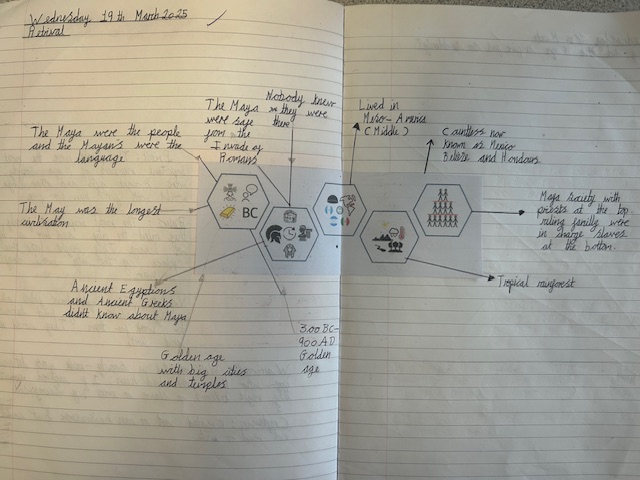 Wednesday 19th March 2025
Retrival
The Maya were the people
and the Mayans were the
language
The Maya
were safe
from the
Invade of
Romans
Nobody knew
they were
there
Lived in
Meso-America
(Middle)
Countless now
known as Mexico
Belize and Honduras
The May was the longest
civilisation
BC
Maya society with
priests at the top
ruling family were
in charge slaves
at the bottom.
Tropical rainforest
Ancient Egyptions
and Ancient Greeks
didn't know about Maya
Golden age
with big cities
and temples
300 BC-
900 A.D
Golden
age